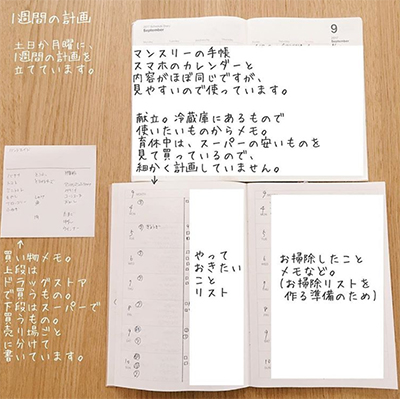 1週間の計画
土日か月曜に、
1週間の計画を
立てています。
September
9
マンスリーの手帳
スマホのカレンダーと
内容がほぼ同じですが、
見やすいので使っています。
献立。冷蔵庫にあるもので
使いたいものからメモ。
育休中は、スーパーの安いものを
見て買っているので、
細かく計画していません。
買い物メモ。
上段は
ドラッグストア
で買うもの。
下段はスーパーで
買うもの。
売り場ごと
に分けて
書いています。
やって
おきたい
こと
リスト
お掃除したこと
メモなど。
(お掃除リストを
作る準備のため)